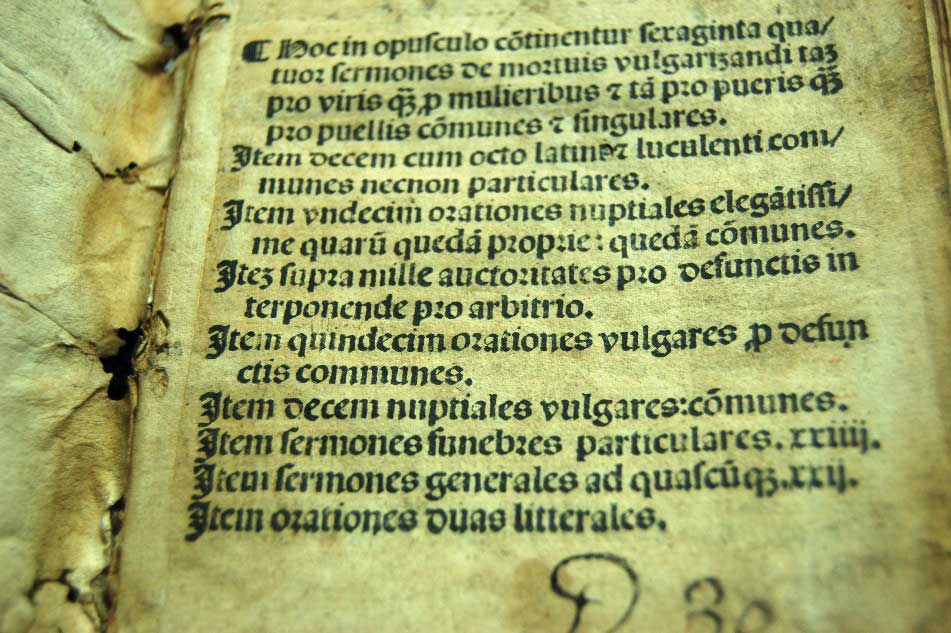 ¶ Hoc in opusculo cōtinentur sexaginta qua/
tuor sermones de mortuis vulgarizandi taꝫ
pro viris qꝫ̄ ꝓ mulieribus ⁊ tā pro pueris qꝫ̄
pro puellis cōmunes ⁊ singulares.
Item decem cum octo latine ⁊ luculenti com/
munes necnon particulares.
Item vndecim orationes nuptiales elegātissi/
me quarū quedā proprie: quedā cōmunes.
Iteꝫ supra mille auctoritates pro defunctis in
terponende pro arbitrio.
Item quindecim orationes vulgares ꝓ defun
ctis communes.
Item decem nuptiales vulgares:cōmunes.
Item sermones funebres particulares.xxiiij.
Item sermones generales ad quascūqꝫ.xxij.
Item orationes duas litterales.